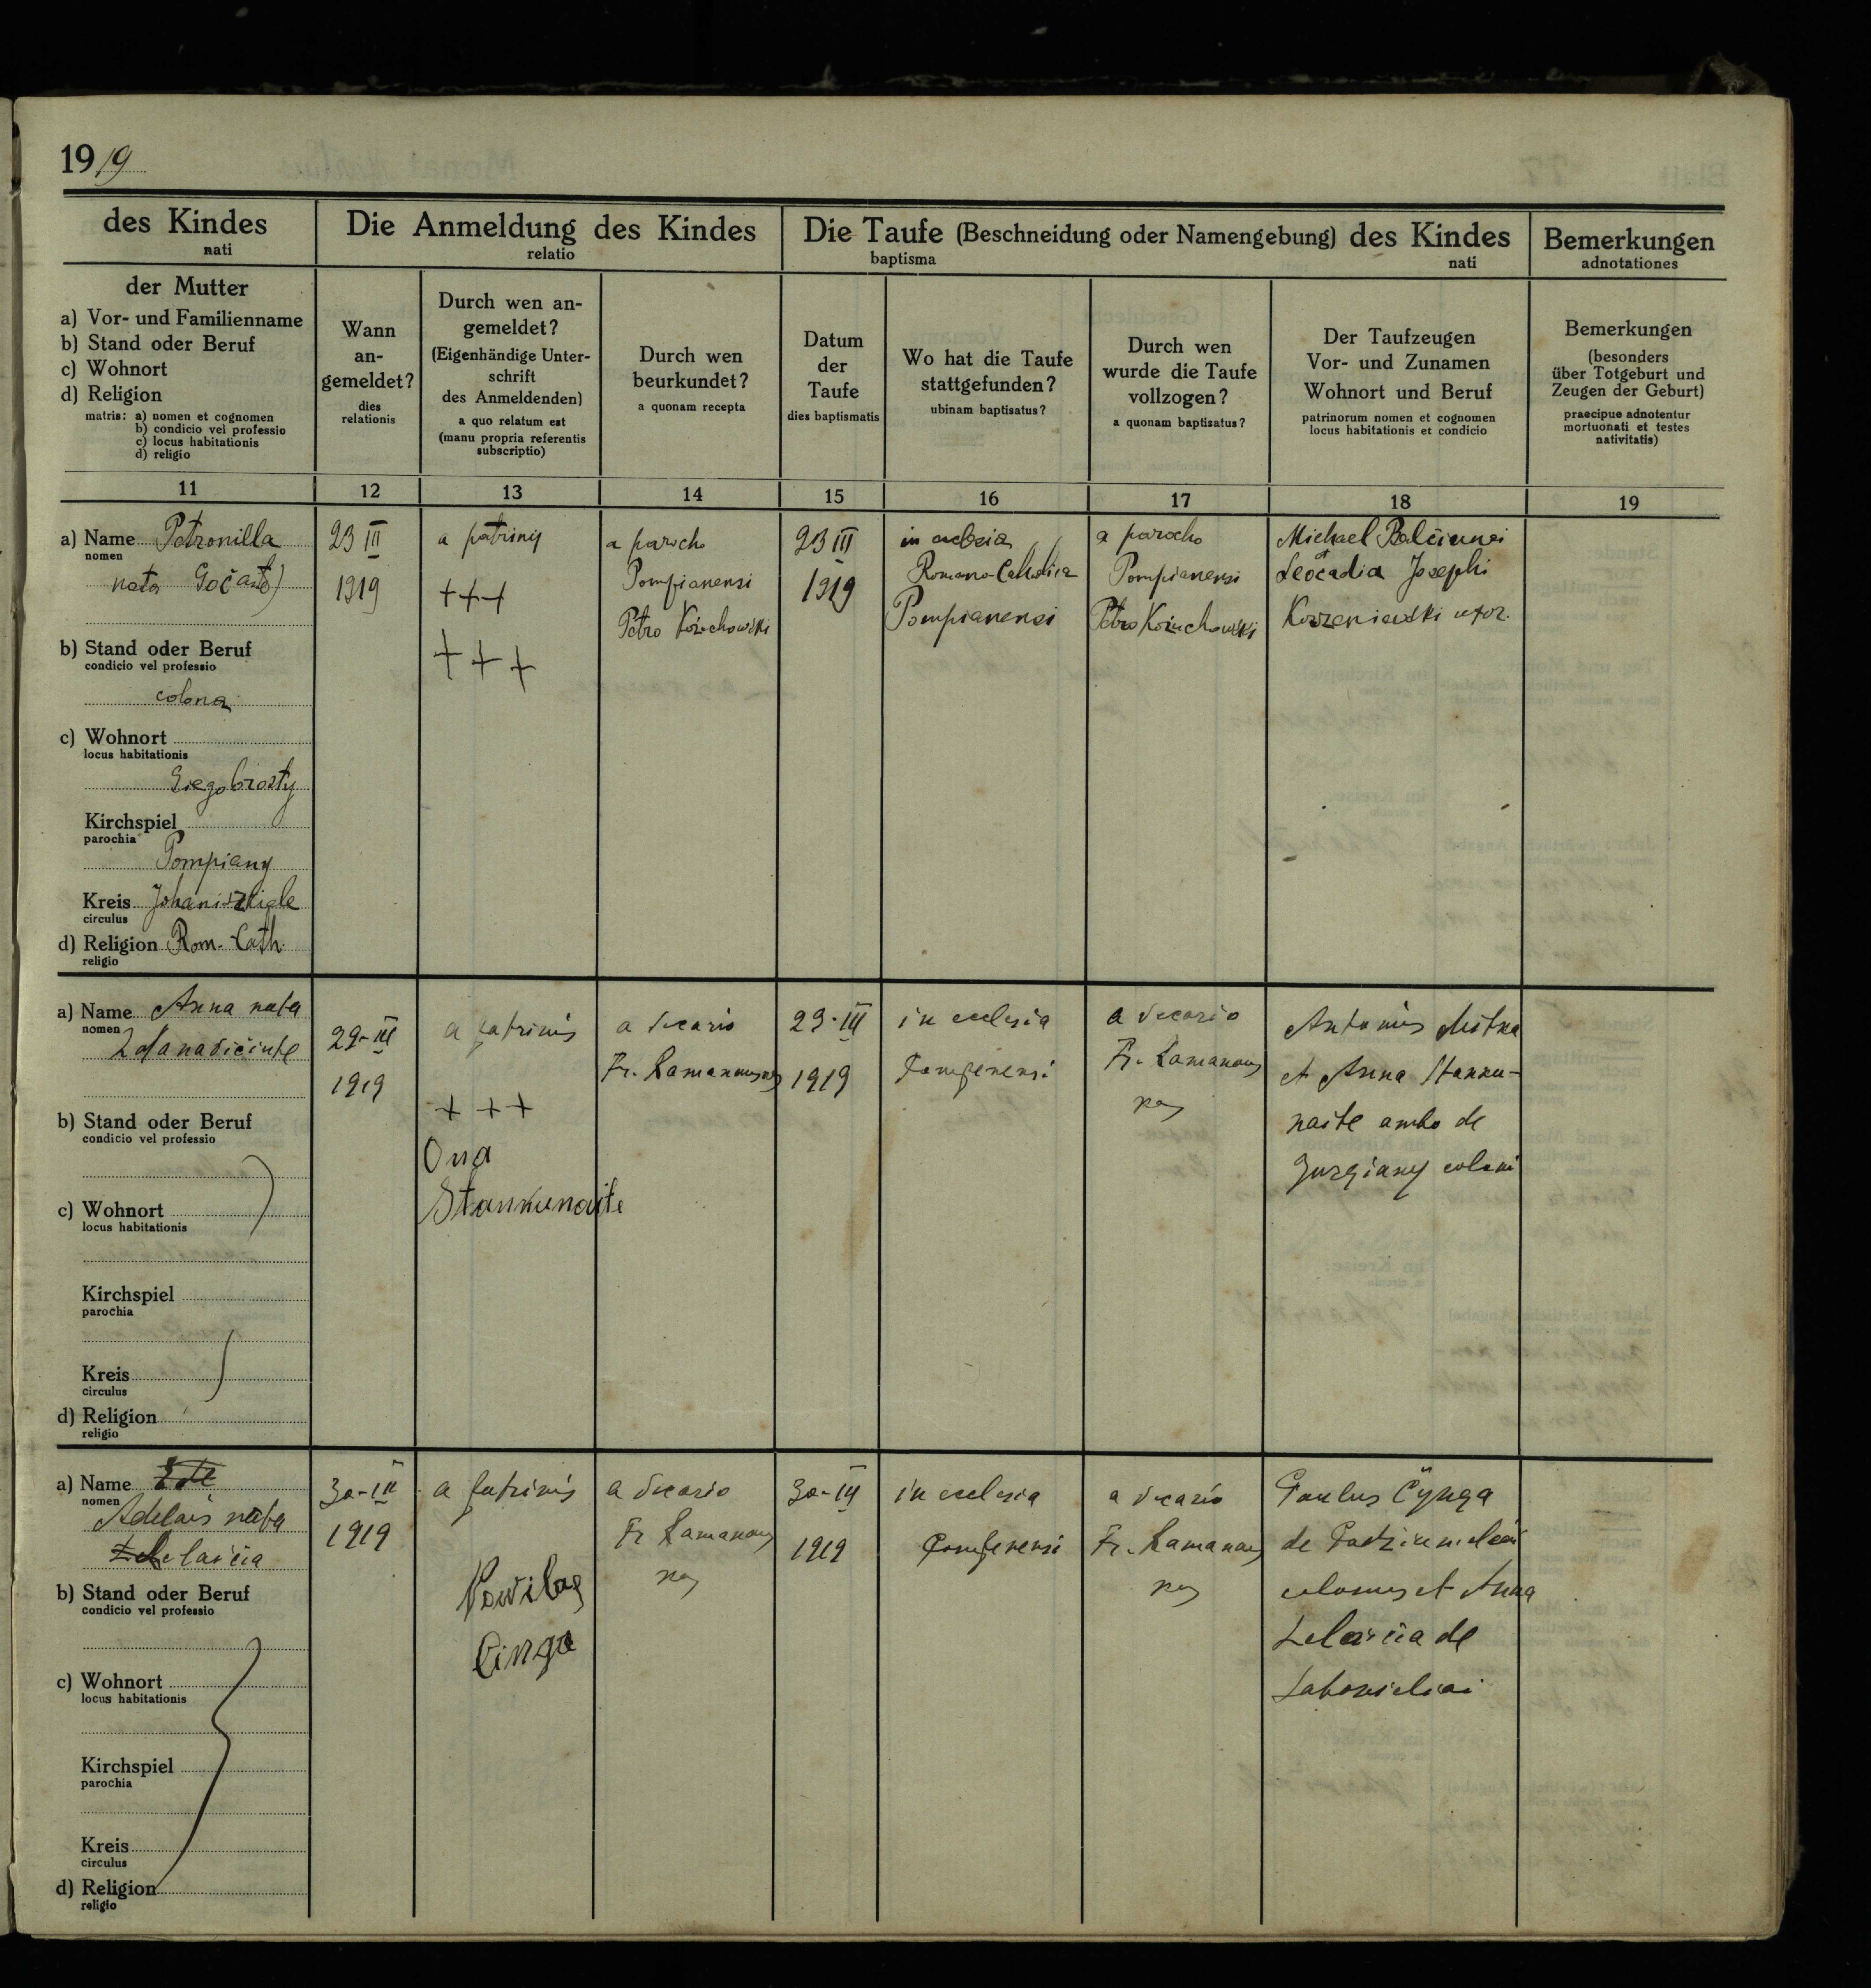 1919
des Kindes
nati
Die Anmeldung des Kindes
relatio
Die Taufe (Beschneidung oder Namengebung) des Kindes
baptisma nati
Bemerkungen
adnotationes
der Mutter
a) Vor- und Familienname
b) Stand oder Beruf
c) Wohnort
d) Religion
matris: a) nomen et cognomen
b) condicio vel professio
c) locus habitationis
d) religio
Wann
an-
gemeldet?
dies
relationis
Durch wen an-
gemeldet?
(Eigenhändige Unter-
schrift
des Anmeldenden)
a quo relatum est
(manu propria referentis
subscriptio)
Durch wen
beurkundet?
a quonam recepta
Datum
der
Taufe
dies baptismatis
Wo hat die Taufe
stattgefunden?
ubinam baptisatus?
Durch wen
wurde die Taufe
vollzogen?
a quonam baptisatus?
Der Taufzeugen
Vor- und Zunamen
Wohnort und Beruf
patrinorum nomen et cognomen
locus habitationis et condicio
Bemerkungen
(besonders
über Totgeburt und
Zeugen der Geburt)
praecipue adnotentur
mortuonati et testes
nativitatis)
11 12 13 14 15 16 17 18 19
a) Name Petronilla
nomen
nata
b) Stand oder Beruf
condicio vel professio
colona
c) Wohnort
locus habitationis
Giegobrosty
Kirchspiel
parochia
Pompiany
Kreis Johaniszkiele
circulus
d) Religion Rom.-Cath.
religio
23 III
1919
a patrinij
+++
+++
a parocho
Pompianensi
Petro Kozuchowski
23 III
1919
in eclesia
Romano-Catholica
Pompianensi
a parocho
Pompianensi
Petro Kozuchowski
Michael Balciunas
et
Leocadia Josephi
Korzeniewski uxor.
a) Name Anna nata
nomen
b) Stand oder Beruf
condicio vel professio
c) Wohnort
locus habitationis
Kirchspiel
parochia
Kreis
circulus
d) Religion
religio
29-III
1919
a patrinis
+++
Ona
Stankunaite
a vicario
Fr. Ramanausnas
29-III
1919
in eclesia
Pompenensi
a vicario
Fr. Ramanaus
nas
Antonius
et Anna Stanku-
naite ambo de
coloni
a) Name
nomen
Adelais nata
b) Stand oder Beruf
condicio vel professio
c) Wohnort
locus habitationis
Kirchspiel
parochia
Kreis
circulus
d) Religion
religio
30-III
1919
a patrinis
Povilas
Cinga
a vicario
Fr Ramanaus
nas
30-III
1919
in ecclesia
Pompenensi
a vicario
Fr. Ramanaus
nas
Paulus Čynga
de
colonus et Anna
de